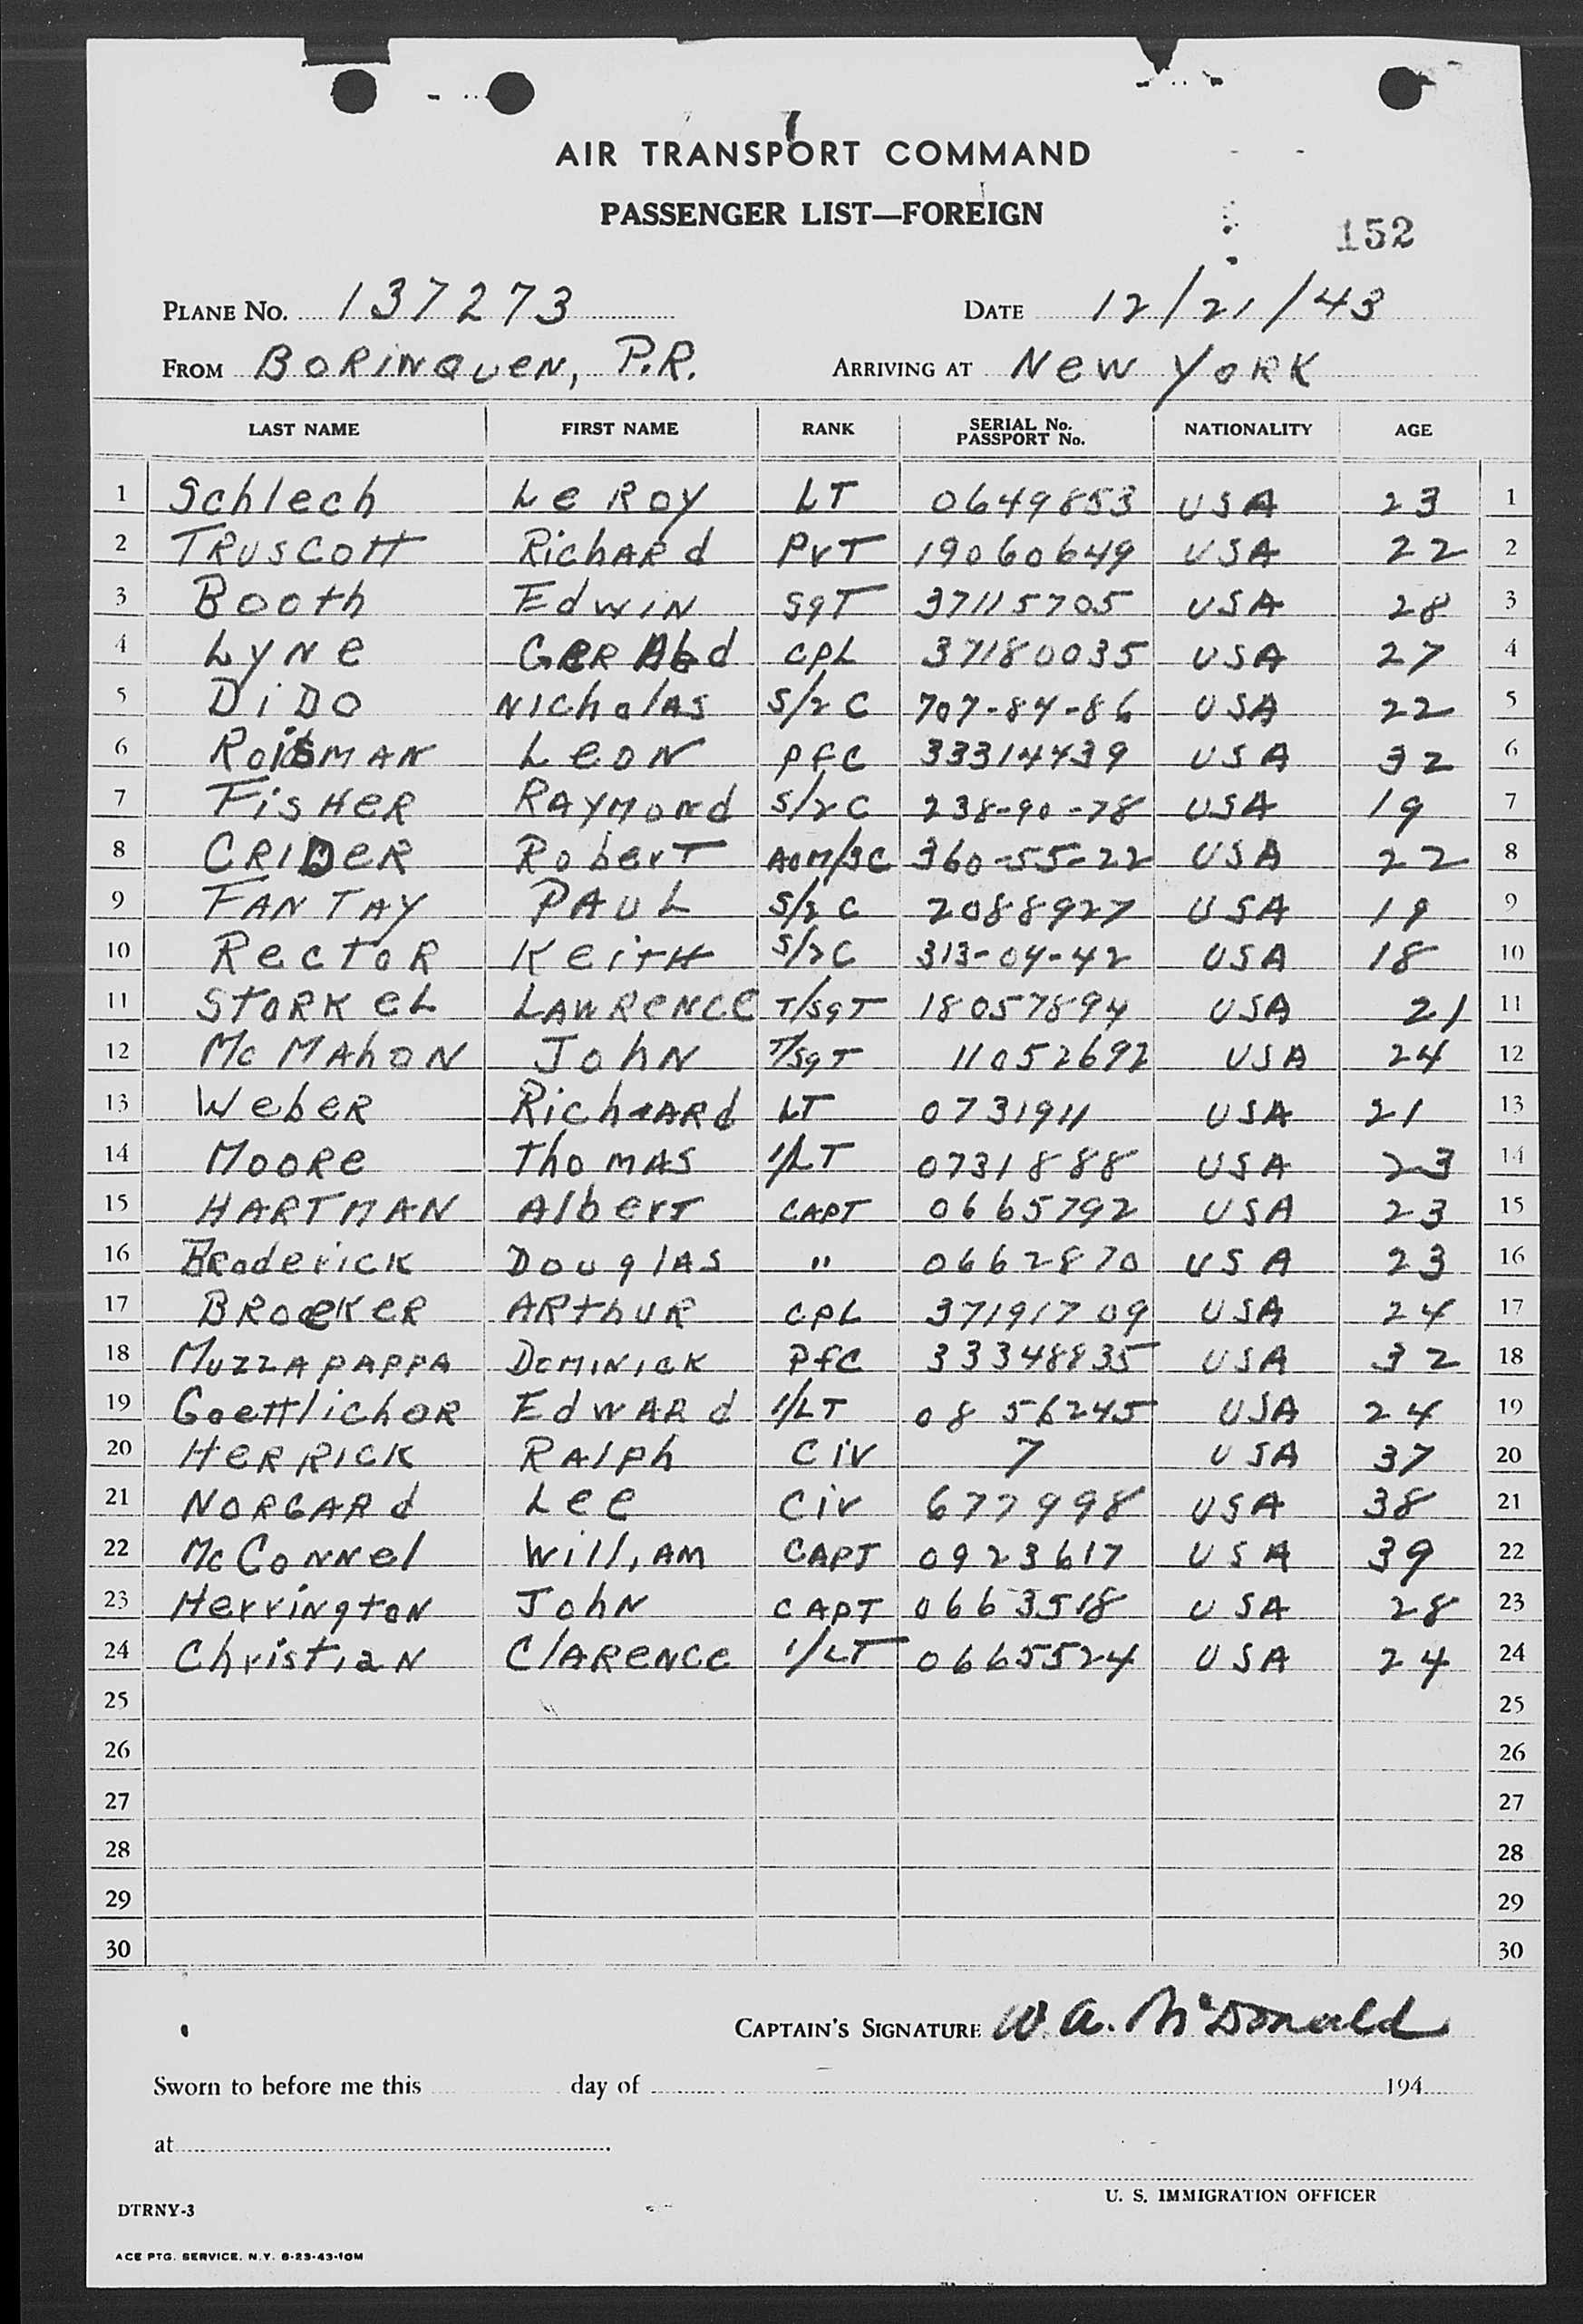 AIR TRANSPORT COMMAND
PASSENGER LIST—FOREIGN
152
PLANE No. 137273 DATE 12/21/43
FROM BORINQUEN, P.R. ARRIVING AT NEW YORK
LAST NAME FIRST NAME RANK SERIAL No. PASSPORT No. NATIONALITY AGE
1 Schlech LeRoy LT 0649853 USA 23 1
2 TRUSCOTT RichARd PVT 19060649 USA 22 2
3 Booth EdwIN SgT 37115705 USA 28 3
4 LyNe GeRALd CPL 37180035 USA 27 4
5 DiDO NIcholAS S/2C 707-84-86 USA 22 5
6 ROISMAN LeON PFC 33314439 USA 32 6
7 FisHeR RAYMONd S/2C 238-90-78 USA 19 7
8 CRIDeR RoberT AOM/3C 360-55-22 USA 22 8
9 FANTAY PAUL S/2C 2088927 USA 19 9
10 RecToR KeiTH S/2C 313-04-42 USA 18 10
11 STORKeL LAWReNCe T/SgT 18057894 USA 21 11
12 McMAhON JohN T/SgT 11052692 USA 24 12
13 WebeR RichARd LT 0731911 USA 21 13
14 MOORe ThoMAS 1/LT 0731888 USA 23 14
15 HARTMAN AlberT CAPT 0665792 USA 23 15
16 BRoderick DouglAS " 0662870 USA 23 16
17 BROeKeR ARThUR CPL 37191709 USA 24 17
18 MUZZAPAPPA DOMINICK PFC 33348835 USA 32 18
19 GoeTTlichOR EdWARd 1/LT 08 56245 USA 24 19
20 HeRRICK RAlph CIV 7 USA 37 20
21 NORGARd Lee Civ 677998 USA 38 21
22 McCoNNel WilliAM CAPT 0923617 USA 39 22
23 HerringtoN JohN CAPT 0663518 USA 28 23
24 ChristiaN ClAReNCe 1/LT 0665524 USA 24 24
25 25
26 26
27 27
28 28
29 29
30 30
CAPTAIN'S SIGNATURE W. A. McDonald
Sworn to before me this day of 194
at
U. S. IMMIGRATION OFFICER
DTRNY-3
ACE PTG. SERVICE. N.Y. 6-23-43-10M